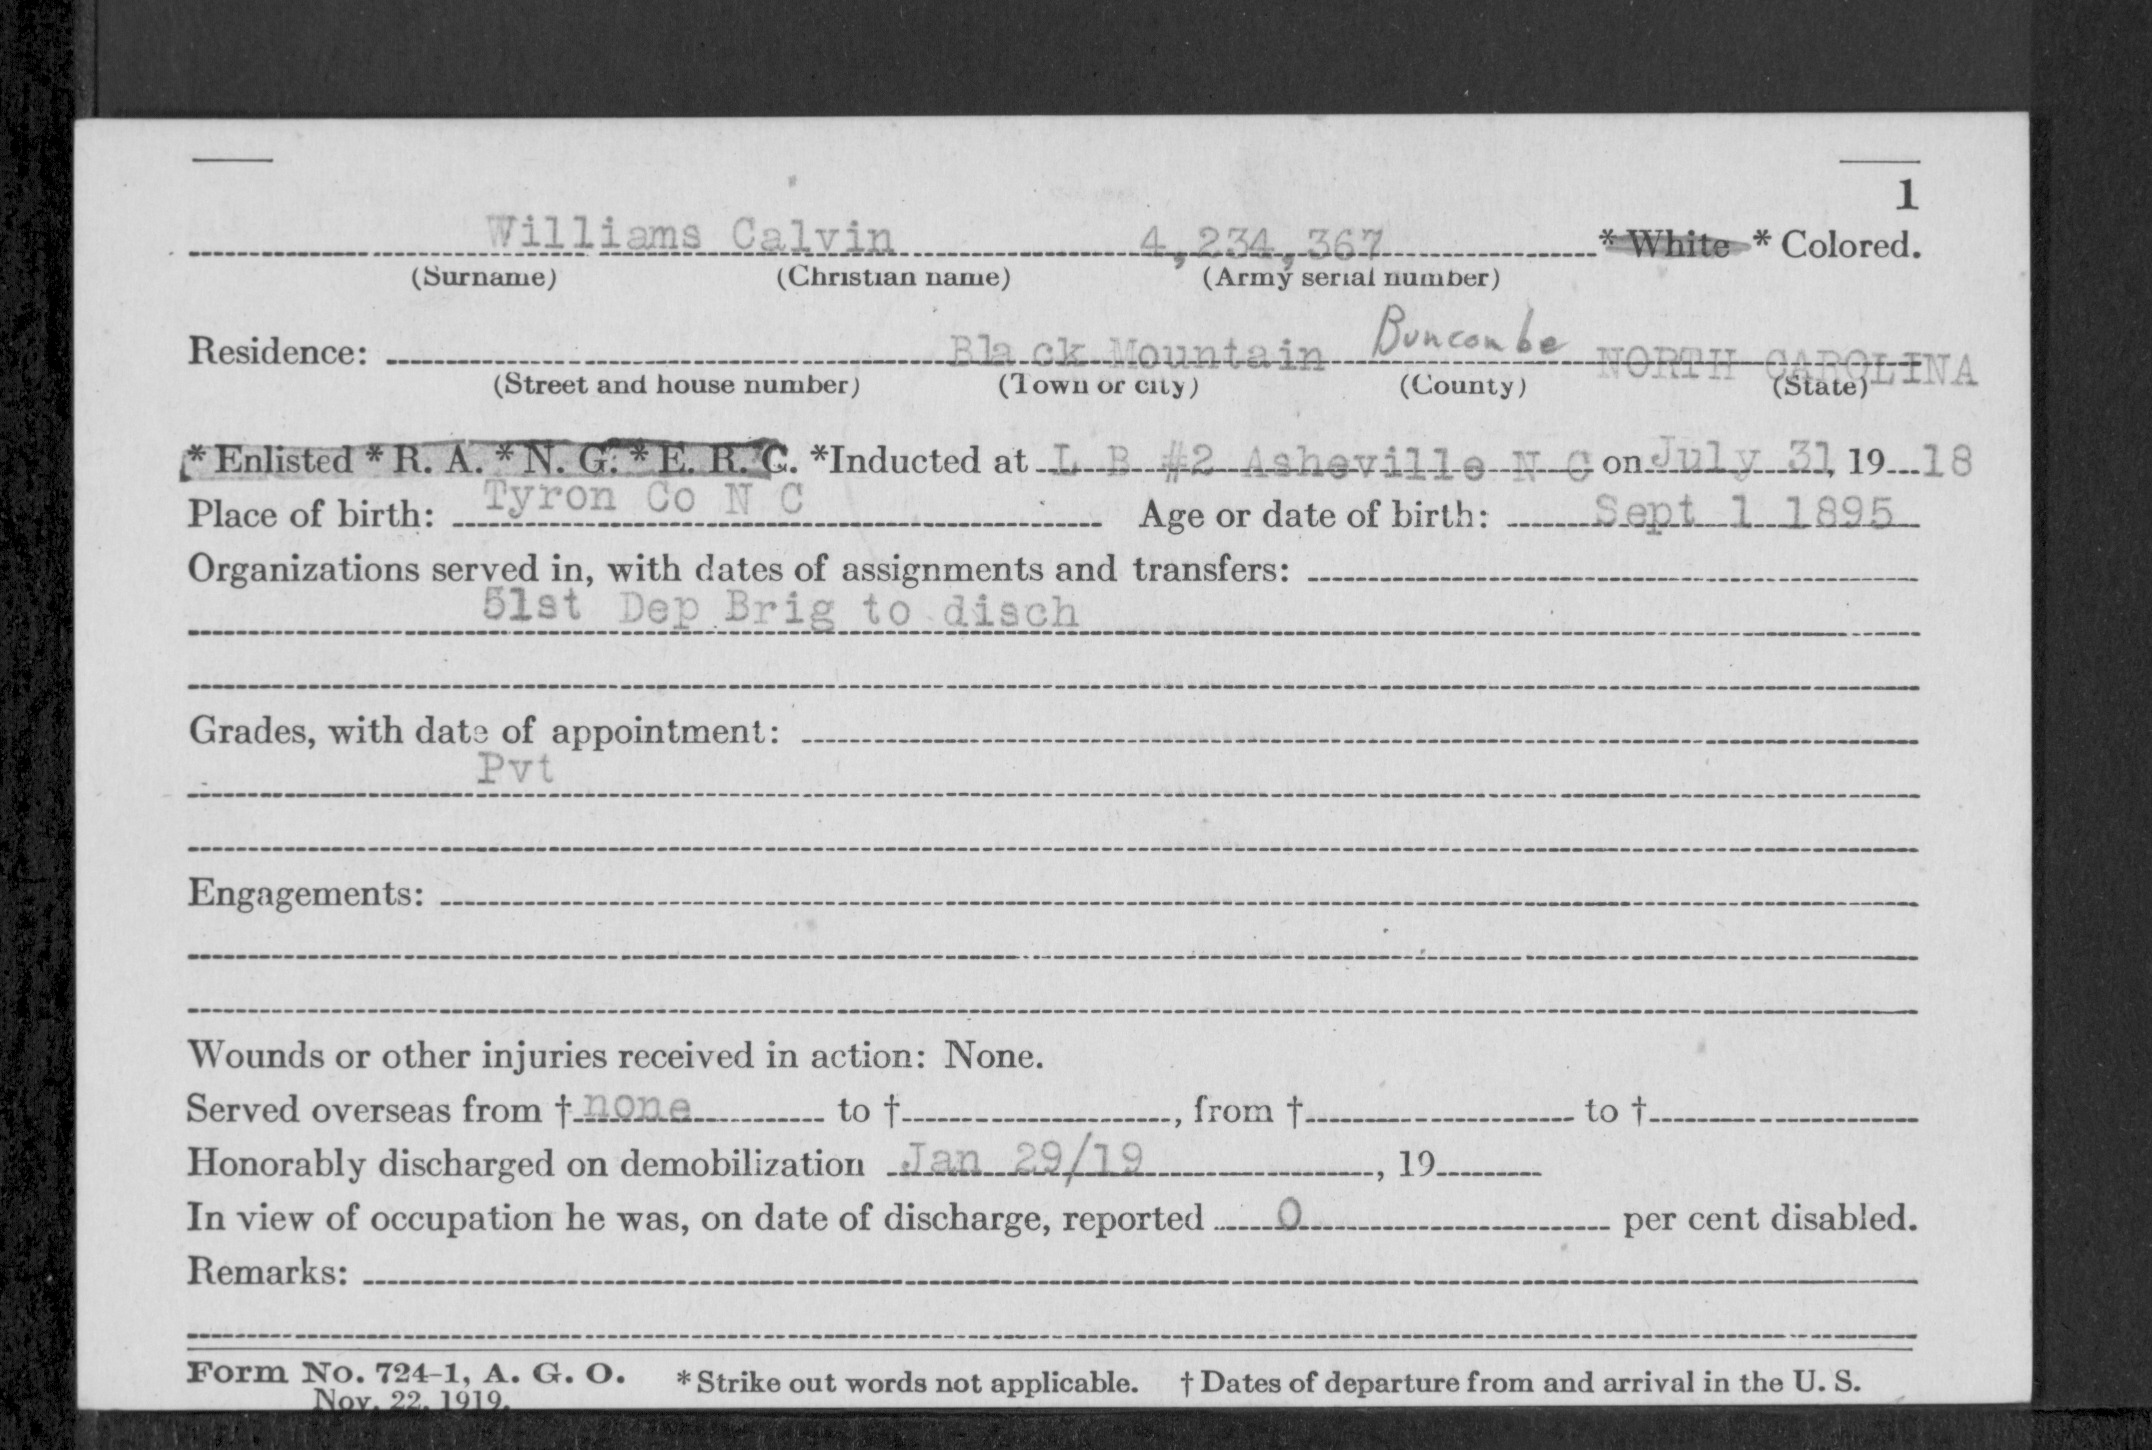 1
Williams Calvin 4,234,367 * White * Colored.
(Surname) (Christian name) (Army serial number)
Residence: Black Mountain Buncombe NORTH CAROLINA
(Street and house number) (Town or city) (County) (State)
* Enlisted * R. A. * N. G. * E. R. C. *Inducted at L B #2 Asheville N C on July 31, 19 18
Place of birth: Tyron Co N C Age or date of birth: Sept 1 1895
Organizations served in, with dates of assignments and transfers:
51st Dep Brig to disch
Grades, with date of appointment:
Pvt
Engagements:
Wounds or other injuries received in action: None.
Served overseas from † none to †, from † to †
Honorably discharged on demobilization Jan 29/19, 19
In view of occupation he was, on date of discharge, reported 0 per cent disabled.
Remarks:
Form No. 724-1, A. G. O. * Strike out words not applicable. † Dates of departure from and arrival in the U. S.
Nov. 22, 1919.